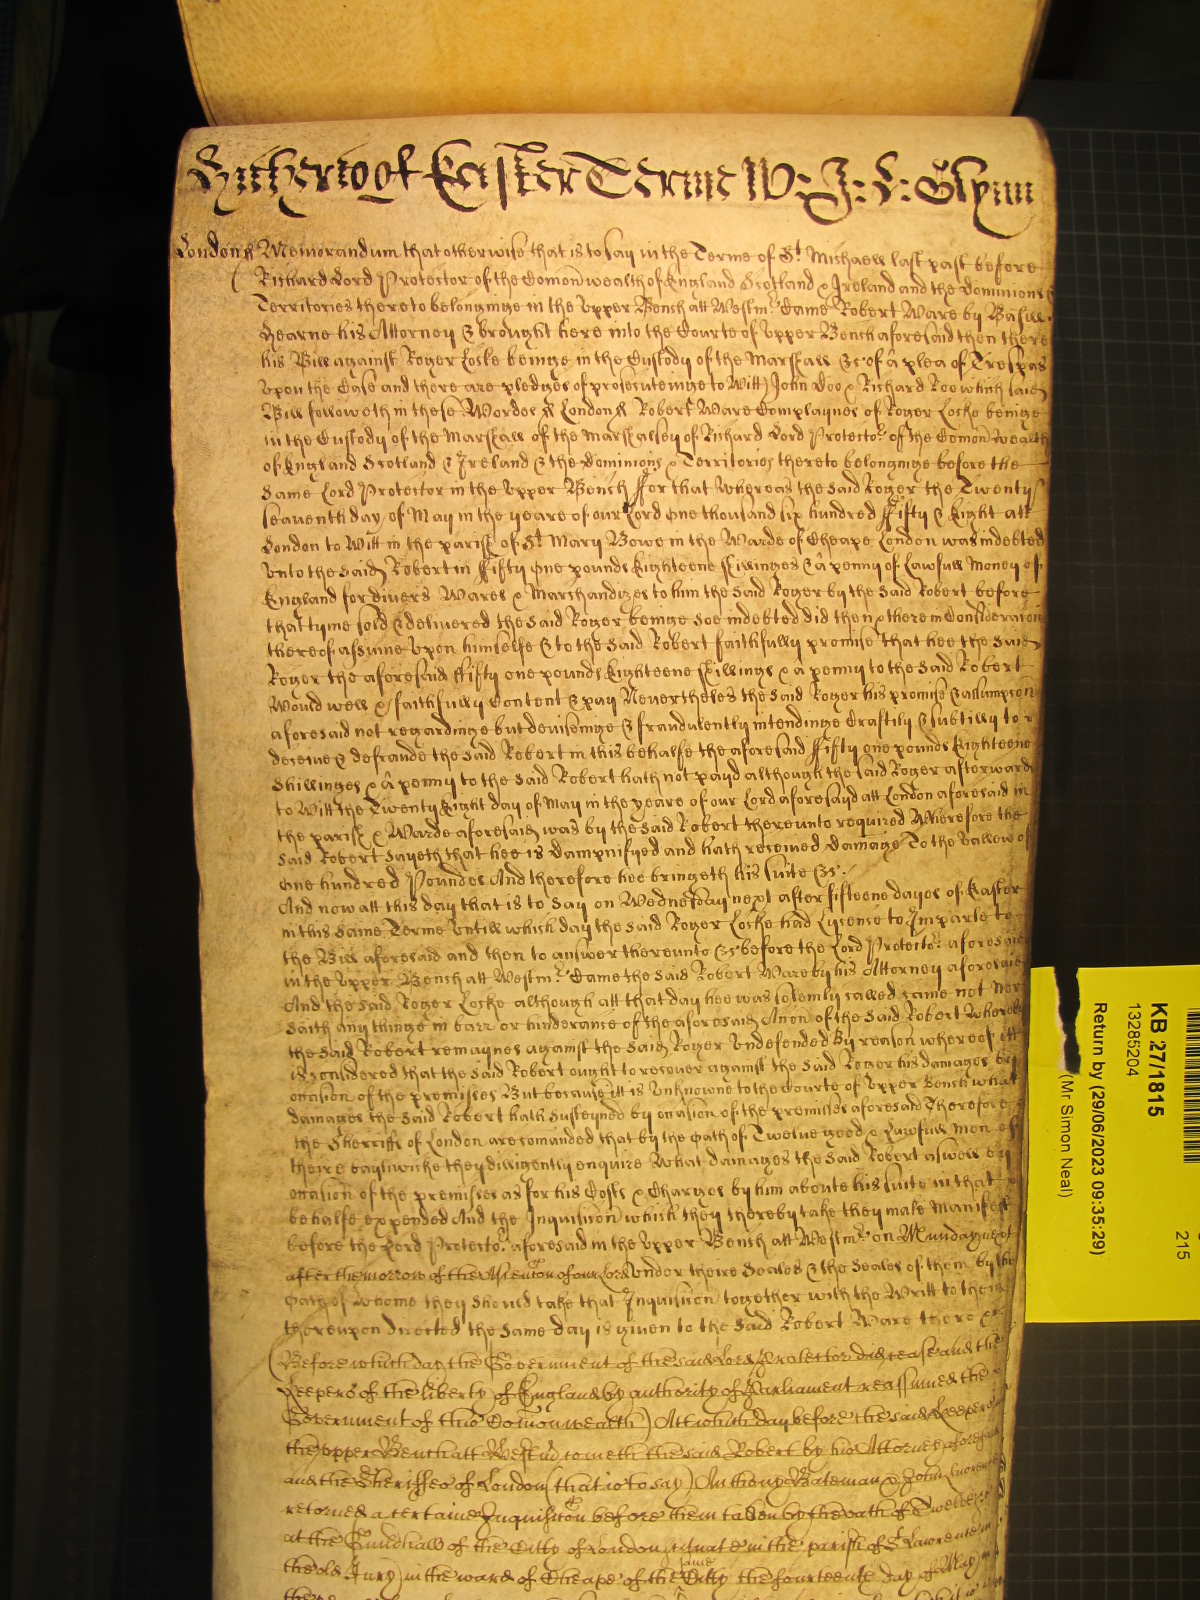 Hitherto of Easter Terme W: J: L: Glynn
London ss Memorandum that otherwise that is to say in the Terme of St. Michaell last past before
Richard Lord Protector of the Comon wealth of England Scotland & Ireland and the Dominions &
Territories thereto belonginge in the Upper Bench att Westmr. Came Robert Ware by Basill
Hearne his Attorney & brought here into the Courte of Upper Bench aforesaid then there
his Bill against Roger Locke beinge in the Custody of the Marshall &c of a plea of Trespas
upon the Case and there are pledges of prosecuteinge to Witt John Doo & Richard Roo which said
Bill followeth in these Wordes ss London ss Robert Ware Complaynes of Roger Locke beinge
in the Custody of the Marshall of the Marshalsey of Richard Lord Protector of the Comon Wealth
of England Scotland & Ireland & the Dominions & Territories thereto belonginge before the
same Lord Protector in the Upper Bench ffor that Whereas the said Roger the Twenty
seaventh day of May in the yeare of our Lord One thousand six hundred ffifty & Eight att
London to Witt in the parish of St. Mary Bowe in the Warde of Cheape London was indebted
unto the said Robert in ffifty one pounds Eighteene shillinges & a penny of Lawfull Money of
England for divers Wares & Marchandizes to him the said Roger by the said Robert before
that tyme sold & delivered the said Roger beinge soe indebted did then & there in Consideracon
thereof assume upon himselfe & to the said Robert faithfully promise that hee the said
Roger the aforesaid ffifty one pounds Eighteene shillings & a penny to the said Robert
Would well & faithfully Content & pay Nevertheles the said Roger his promise & assumpson
aforesaid not regardinge but deviseinge & fraudulently intendinge Craftily & subtilly to
deceive & defraude the said Robert in this behalfe the aforesaid ffifty one pounds Eighteene
Shillinges & a penny to the said Robert hath not payd although the said Roger afterwards
to Witt the Twenty Eight day of May in the yeare of our Lord aforesayd att London aforesaid in
the parish & Warde aforesaid was by the said Robert thereunto required Wherefore the
said Robert sayeth that hee is Dampnifyed and hath received Damage To the vallew of
One hundred Poundes And therefore hee bringeth his suite &c.
And now att this day that is to say on Wednesday next after fifteene dayes of Easter
in this same Terme Untill which day the said Roger Locke had Lycense to Imparle to
the Bill aforesaid and then to answer thereunto &c before the Lord Protector aforesaid
in the Upper Bench att Westmr. Came the said Robert Ware by his Attorney aforesaid
And the said Roger Locke although att that day hee was solemly called came not Nor
saith any thinge in barr or hinderance of the aforesaid Accon of the said Robert Whereby
the said Robert remaynes against the said Roger Undefended By reason whereof itt
is considered that the said Robert ought to recover against the said Roger his damages by
occasion of the premisses But because itt is Unknowne to the Courte of Upper Bench what
damages the said Robert hath susteyned by occasion of the premisses aforesaid Therefore
the Sherriffs of London are comanded that by the Oath of Twelve good & Lawfull men of
theire bayliwicke they dilligently enquire What damages the said Robert aswell by
occasion of the premisses as for his Costs & Charges by him aboute his suite in that
behalfe expended And the Inquisicon which they thereby take they make Manifest
before the Lord Protector aforesaid in the Upper Bench att Westmr. on Munday next
after the morrow of the Ascencon of our Lord under theire Seales & the Seales of them by the
Oath of whome they should take that Inquisicon together with the Writt to them
thereupon directed the same day is given to the said Robert Ware there &c
(Before which day the Government of the said Lord Protector did cease and the
Keepers of the liberty of England by authority of Parliament reassumed the
Government of this Comonwealth) Att which day before the said Keepers
the Upper Bench att Westmr. cometh the said Robert by his Attorney aforesaid
and the Sheriffes of London (that is to say) Anthony Bateman & John Lawrence
retorned a certaine Inquisicon before them taken by the oath of Twelve
at the Guildhall of the Citty of London scituate in the parish of St. Lawrence in
the old Jury in the ward of Cheape of the same Citty the fourteenth day of May
KB 27/1815
13285204
Return by (29/06/2023 09:35:29)
(Mr Simon Neal)
215